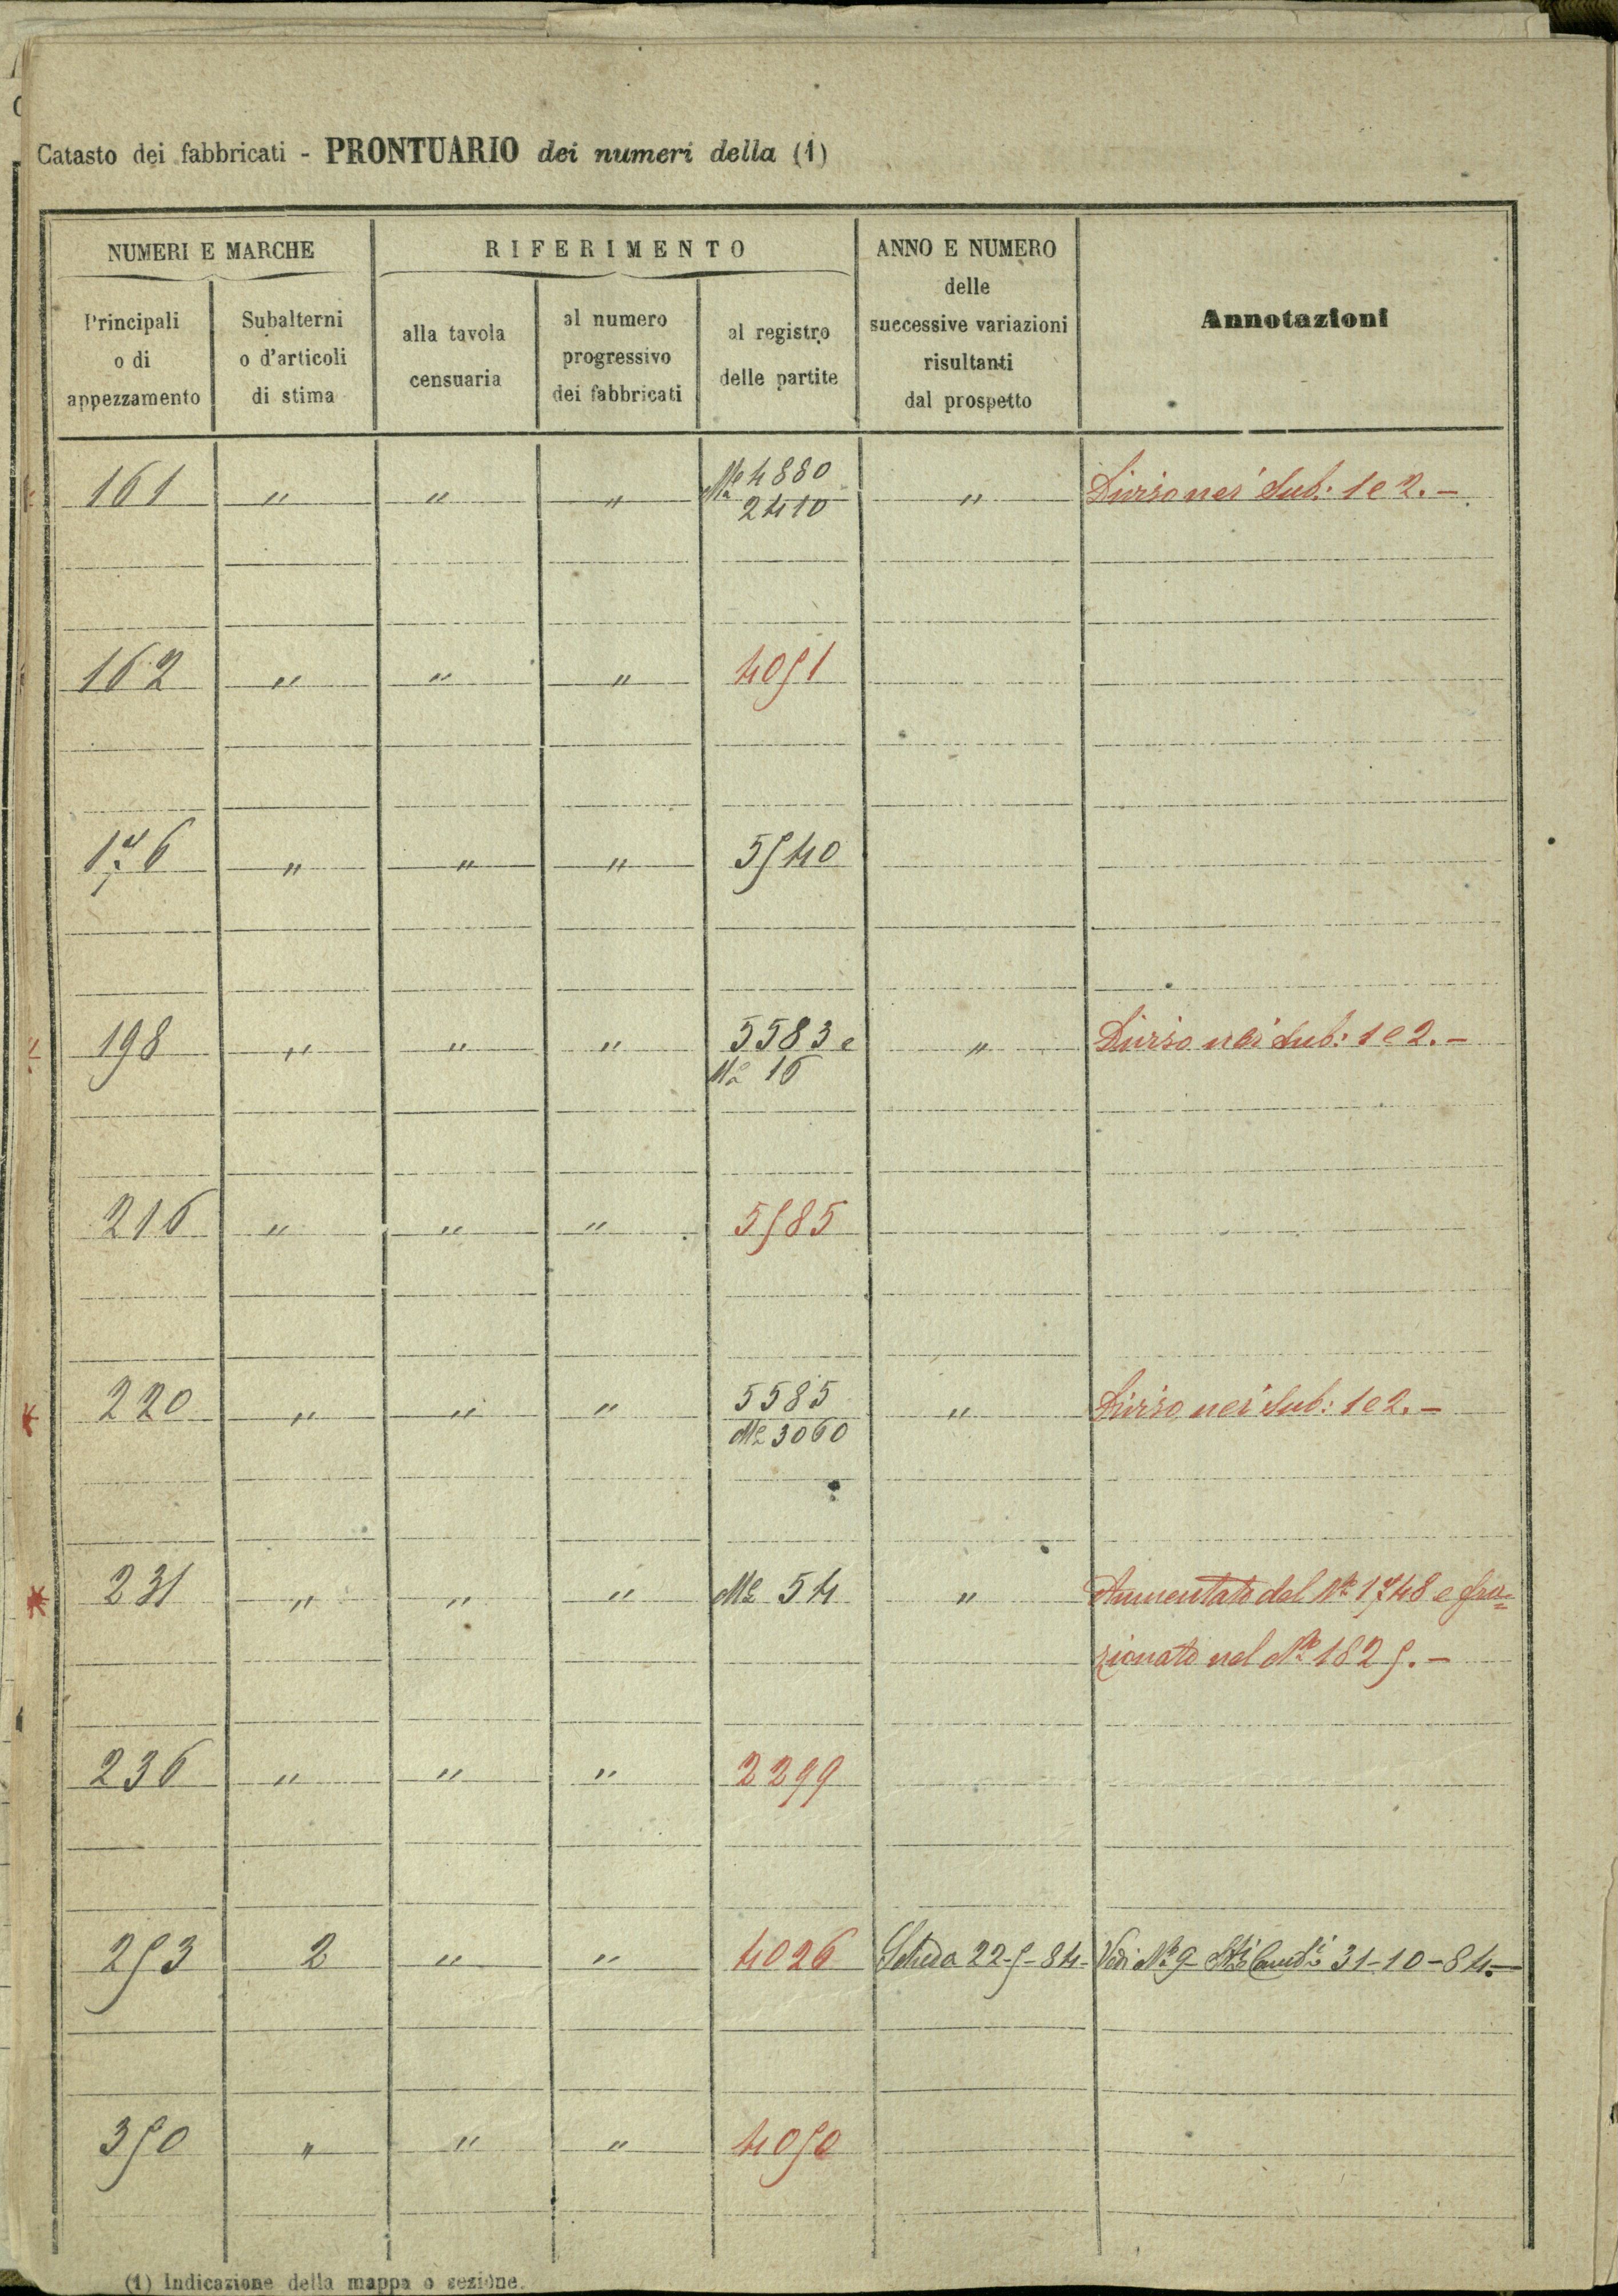 Catasto dei fabbricati - PRONTUARIO dei numeri della (1)
NUMERI E MARCHE
RIFERIMENTO
ANNO E NUMERO
delle
successive variazioni
risultanti
dal prospetto
Annotazioni
Principali
o di
appezzamento
Subalterni
o d'articoli
di stima
alla tavola
censuaria
al numero
progressivo
dei fabbricati
al registro
delle partite
161 " " " Ma 4880 " Diviso nei Sub: 1 e 2. -
2410
162 " " " 4051
176 " " " 5540
198 " " " 5583 e " Diviso nei Sub: 1 e 2. -
Ma 16
216 " " " 5585
220 " " " 5585 " Diviso nei Sub: 1 e 2. -
Ma 3060
231 " " " Ma 54 " Aumentato del No 1748 e fra=
zionato nel No 1825. -
236 " " " 2299
253 2 " " 4026 Scheda 22-5-84- Vedi No 9 31-10-84.-
350 " " " 4050
(1) Indicazione della mappa o sezione.